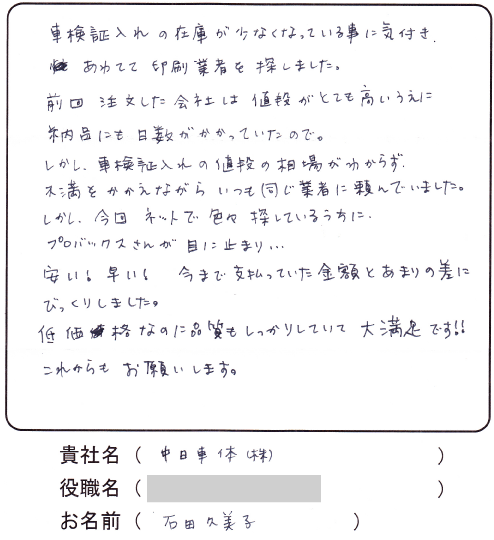 車検証入れの在庫が少なくなっている事に気付き
あわてて印刷業者を探しました。
前回注文した会社は値段がとても高いうえに
納品にも日数がかかっていたので。
しかし、車検証入れの値段の相場がわからず、
不満をかかえながらいつも同じ業者に頼んでいました。
しかし、今回ネットで色々探しているうちに、
プロバックスさんが目に止まり…
安い！早い！ 今まで支払っていた金額とあまりの差に
びっくりしました。
低価格なのに品質もしっかりしていて大満足です!!
これからもお願いします。
貴社名（ 中日車体(株) ）
役職名（ ）
お名前（ 石田久美子 ）